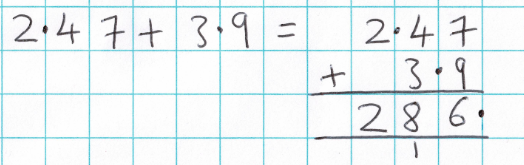 2·47 + 3·9 = 2·47
+ 3·9
286·
1